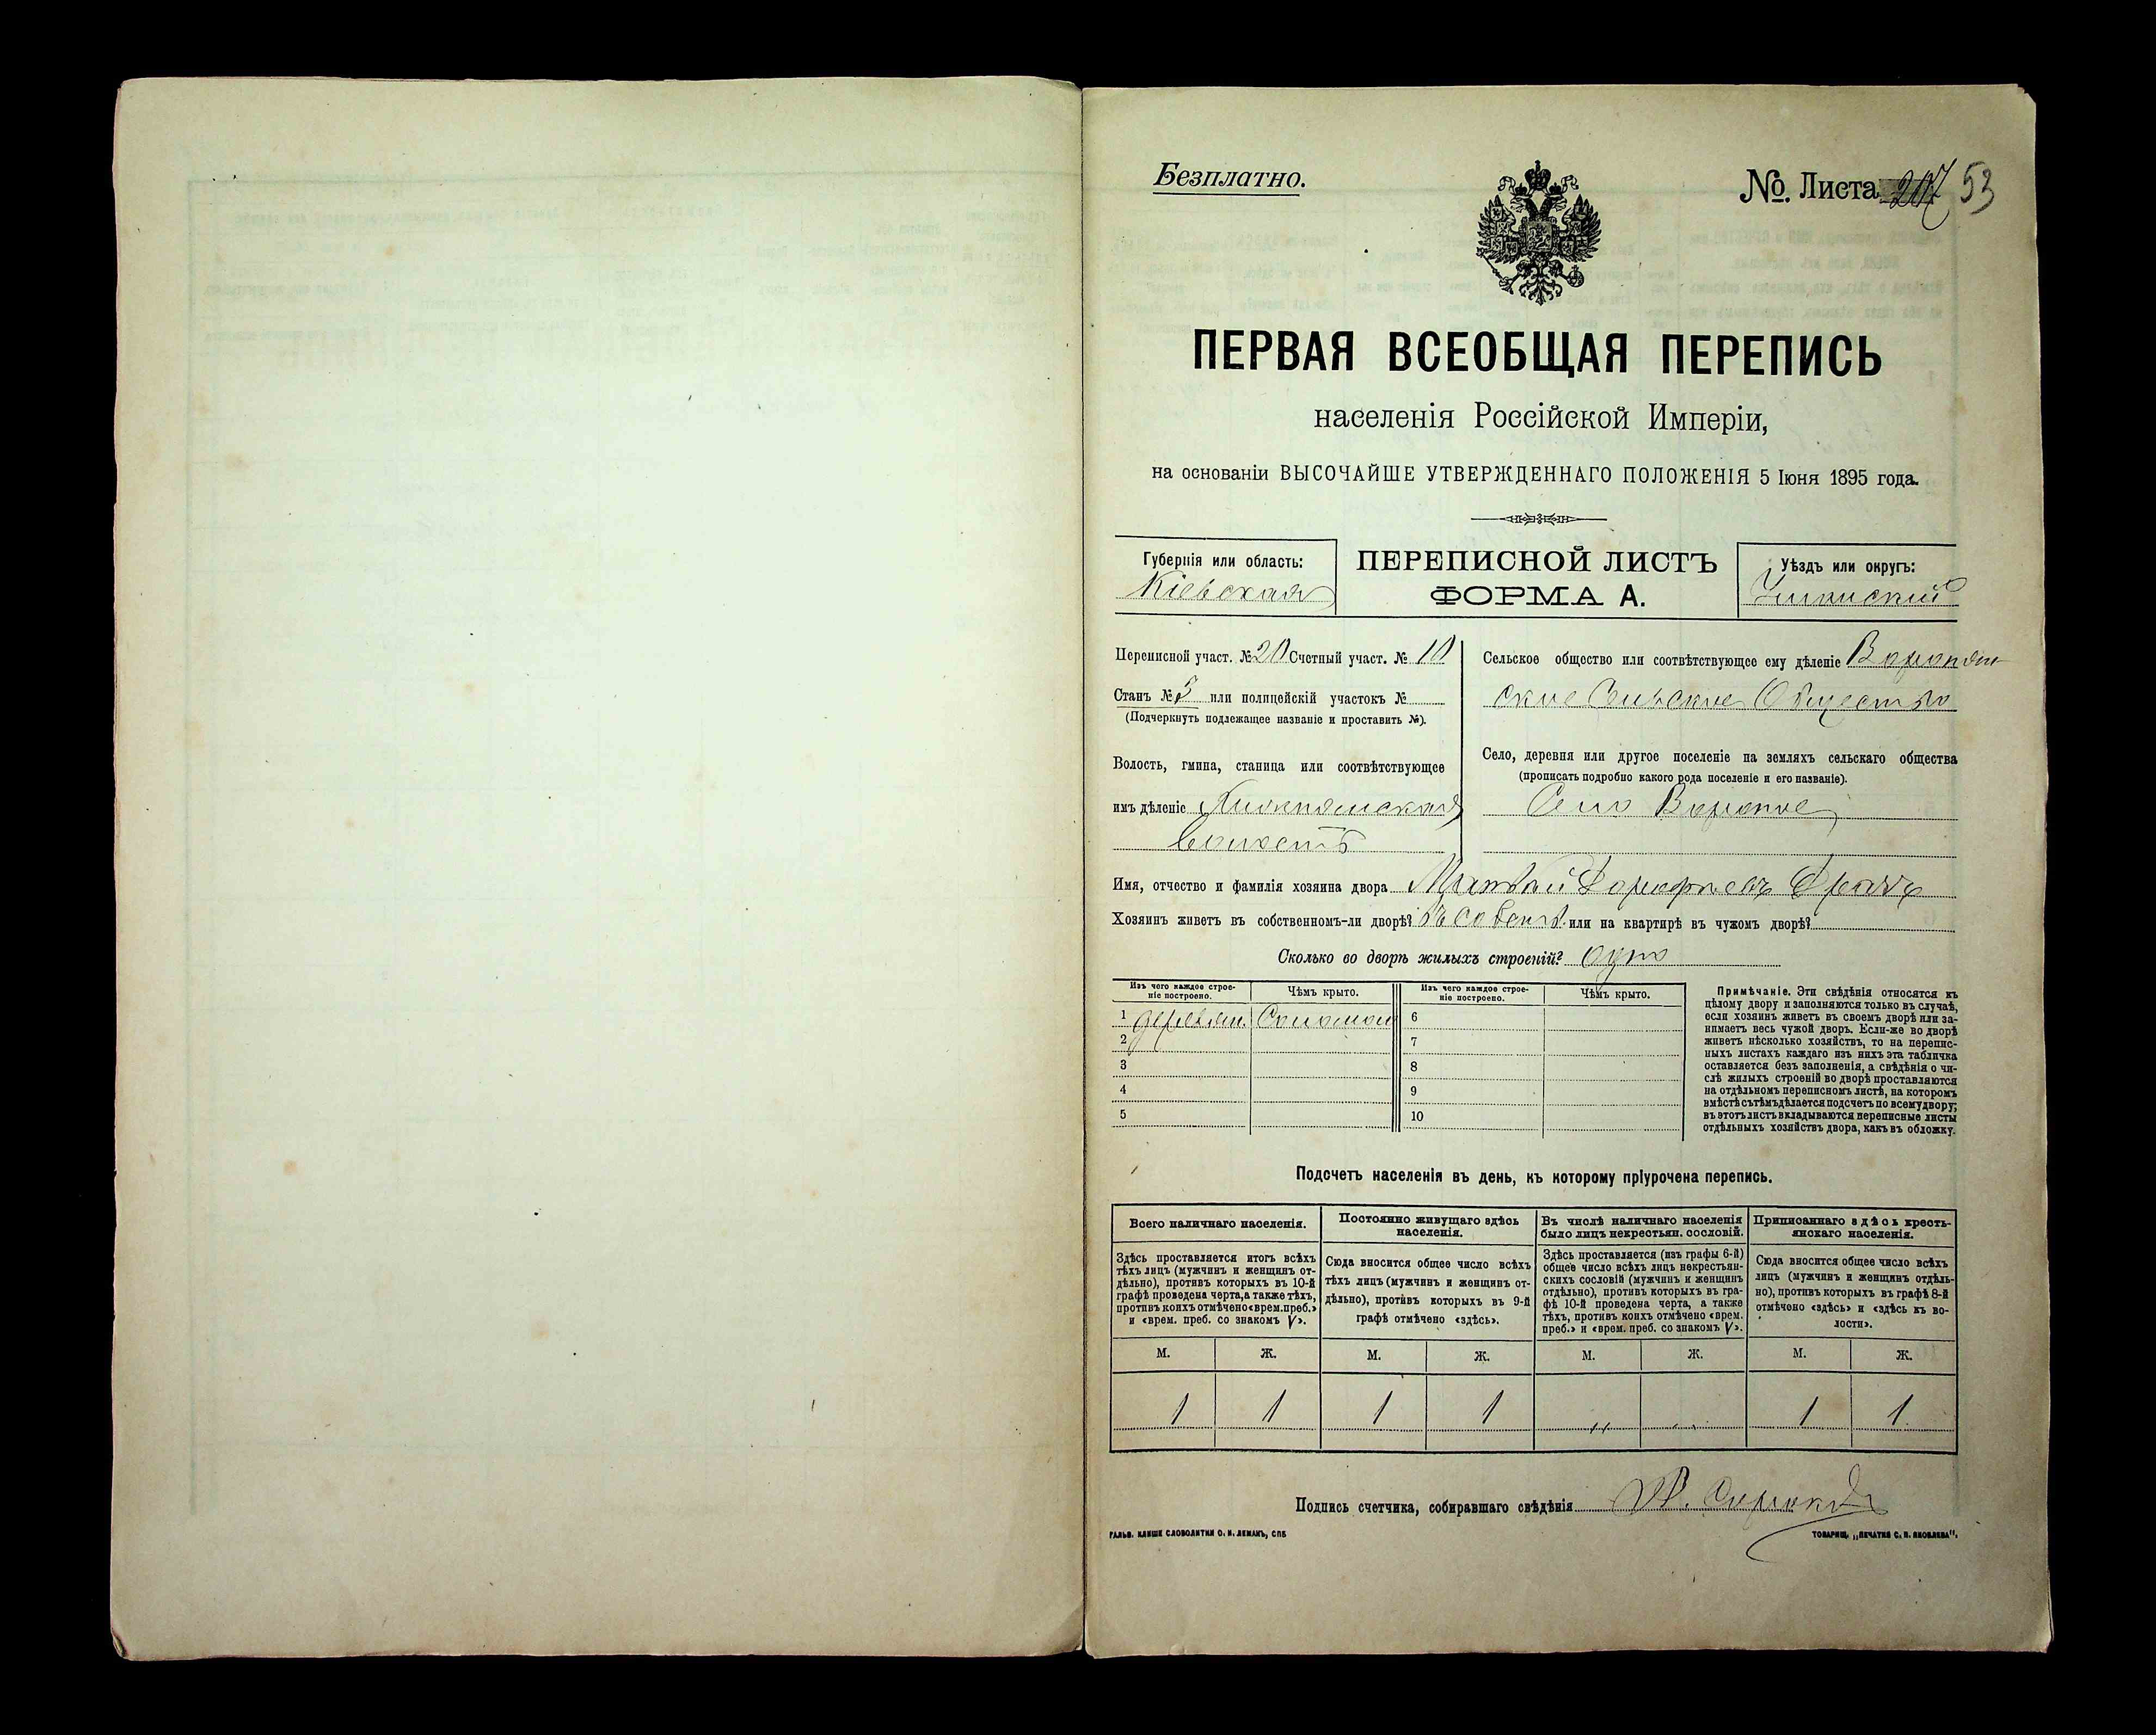 Безплатно.
№. Листа 207 53
ПЕРВАЯ ВСЕОБЩАЯ ПЕРЕПИСЬ
населенія Россійской Имперіи,
на основаніи ВЫСОЧАЙШЕ УТВЕРЖДЕННАГО ПОЛОЖЕНІЯ 5 Іюня 1895 года.
Губернія или область:
Кіевская
ПЕРЕПИСНОЙ ЛИСТЪ
ФОРМА А.
Уѣздъ или округъ:
Уманскій
Переписной участ. № 20 Счетный участ. № 10
Станъ № 5 или полицейскій участокъ №
(Подчеркнуть подлежащее названіе и проставить №).
Волость, гмина, станица или соотвѣтствующее
имъ дѣленіе
волость
Сельское общество или соотвѣтствующее ему дѣленіе
ское Сельское Общество
Село, деревня или другое поселеніе на земляхъ сельскаго общества
(прописать подробно какого рода поселеніе и его названіе).
Село
Имя, отчество и фамилія хозяина двора
Хозяинъ живетъ въ собственномъ-ли дворѣ? въ собств. или на квартирѣ въ чужомъ дворѣ?
Сколько во дворѣ жилыхъ строеній? Одно
Изъ чего каждое строе-
ніе построено.
Чѣмъ крыто.
Изъ чего каждое строе-
ніе построено.
Чѣмъ крыто.
1 деревян. Соломой 6
2 7
3 8
4 9
5 10
Примѣчаніе. Эти свѣдѣнія относятся къ
цѣлому двору и заполняются только въ случаѣ,
если хозяинъ живетъ въ своемъ дворѣ или за-
нимаетъ весь чужой дворъ. Если-же во дворѣ
живетъ нѣсколько хозяйствъ, то на перепис-
ныхъ листахъ каждаго изъ нихъ эта табличка
оставляется безъ заполненія, а свѣдѣнія о чи-
слѣ жилыхъ строеній во дворѣ проставляются
на отдѣльномъ переписномъ листѣ, на которомъ
вмѣстѣ съ тѣмъ дѣлается подсчетъ по всему двору;
въ этотъ листъ вкладываются переписные листы
отдѣльныхъ хозяйствъ двора, какъ въ обложку.
Подсчетъ населенія въ день, къ которому пріурочена перепись.
Всего наличнаго населенія.
Здѣсь проставляется итогъ всѣхъ
тѣхъ лицъ (мужчинъ и женщинъ от-
дѣльно), противъ которыхъ въ 10-й
графѣ проведена черта, а также тѣхъ,
противъ коихъ отмѣчено «врем. преб.»
и «врем. преб. со знакомъ V».
Постоянно живущаго здѣсь
населенія.
Сюда вносится общее число всѣхъ
тѣхъ лицъ (мужчинъ и женщинъ от-
дѣльно), противъ которыхъ въ 9-й
графѣ отмѣчено «здѣсь».
Въ числѣ наличнаго населенія
было лицъ некрестьян. сословій.
Здѣсь проставляется (изъ графы 6-й)
общее число всѣхъ лицъ некрестьян-
скихъ сословій (мужчинъ и женщинъ
отдѣльно), противъ которыхъ въ гра-
фѣ 10-й проведена черта, а также
тѣхъ, противъ коихъ отмѣчено «врем.
преб.» и «врем. преб. со знакомъ V».
Приписаннаго здѣсь кресть-
янскаго населенія.
Сюда вносится общее число всѣхъ
лицъ (мужчинъ и женщинъ отдѣль-
но), противъ которыхъ въ графѣ 8-й
отмѣчено «здѣсь» и «здѣсь къ во-
лости».
М. Ж. М. Ж. М. Ж. М. Ж.
1 1 1 1 „ „ 1 1
Подпись счетчика, собиравшаго свѣдѣнія
ГАЛЬВ. КЛИШЕ СЛОВОЛИТНИ О. И. ЛЕМАНЪ, СПБ
ТОВАРИЩ. „ПЕЧАТНЯ С. П. ЯКОВЛЕВА".